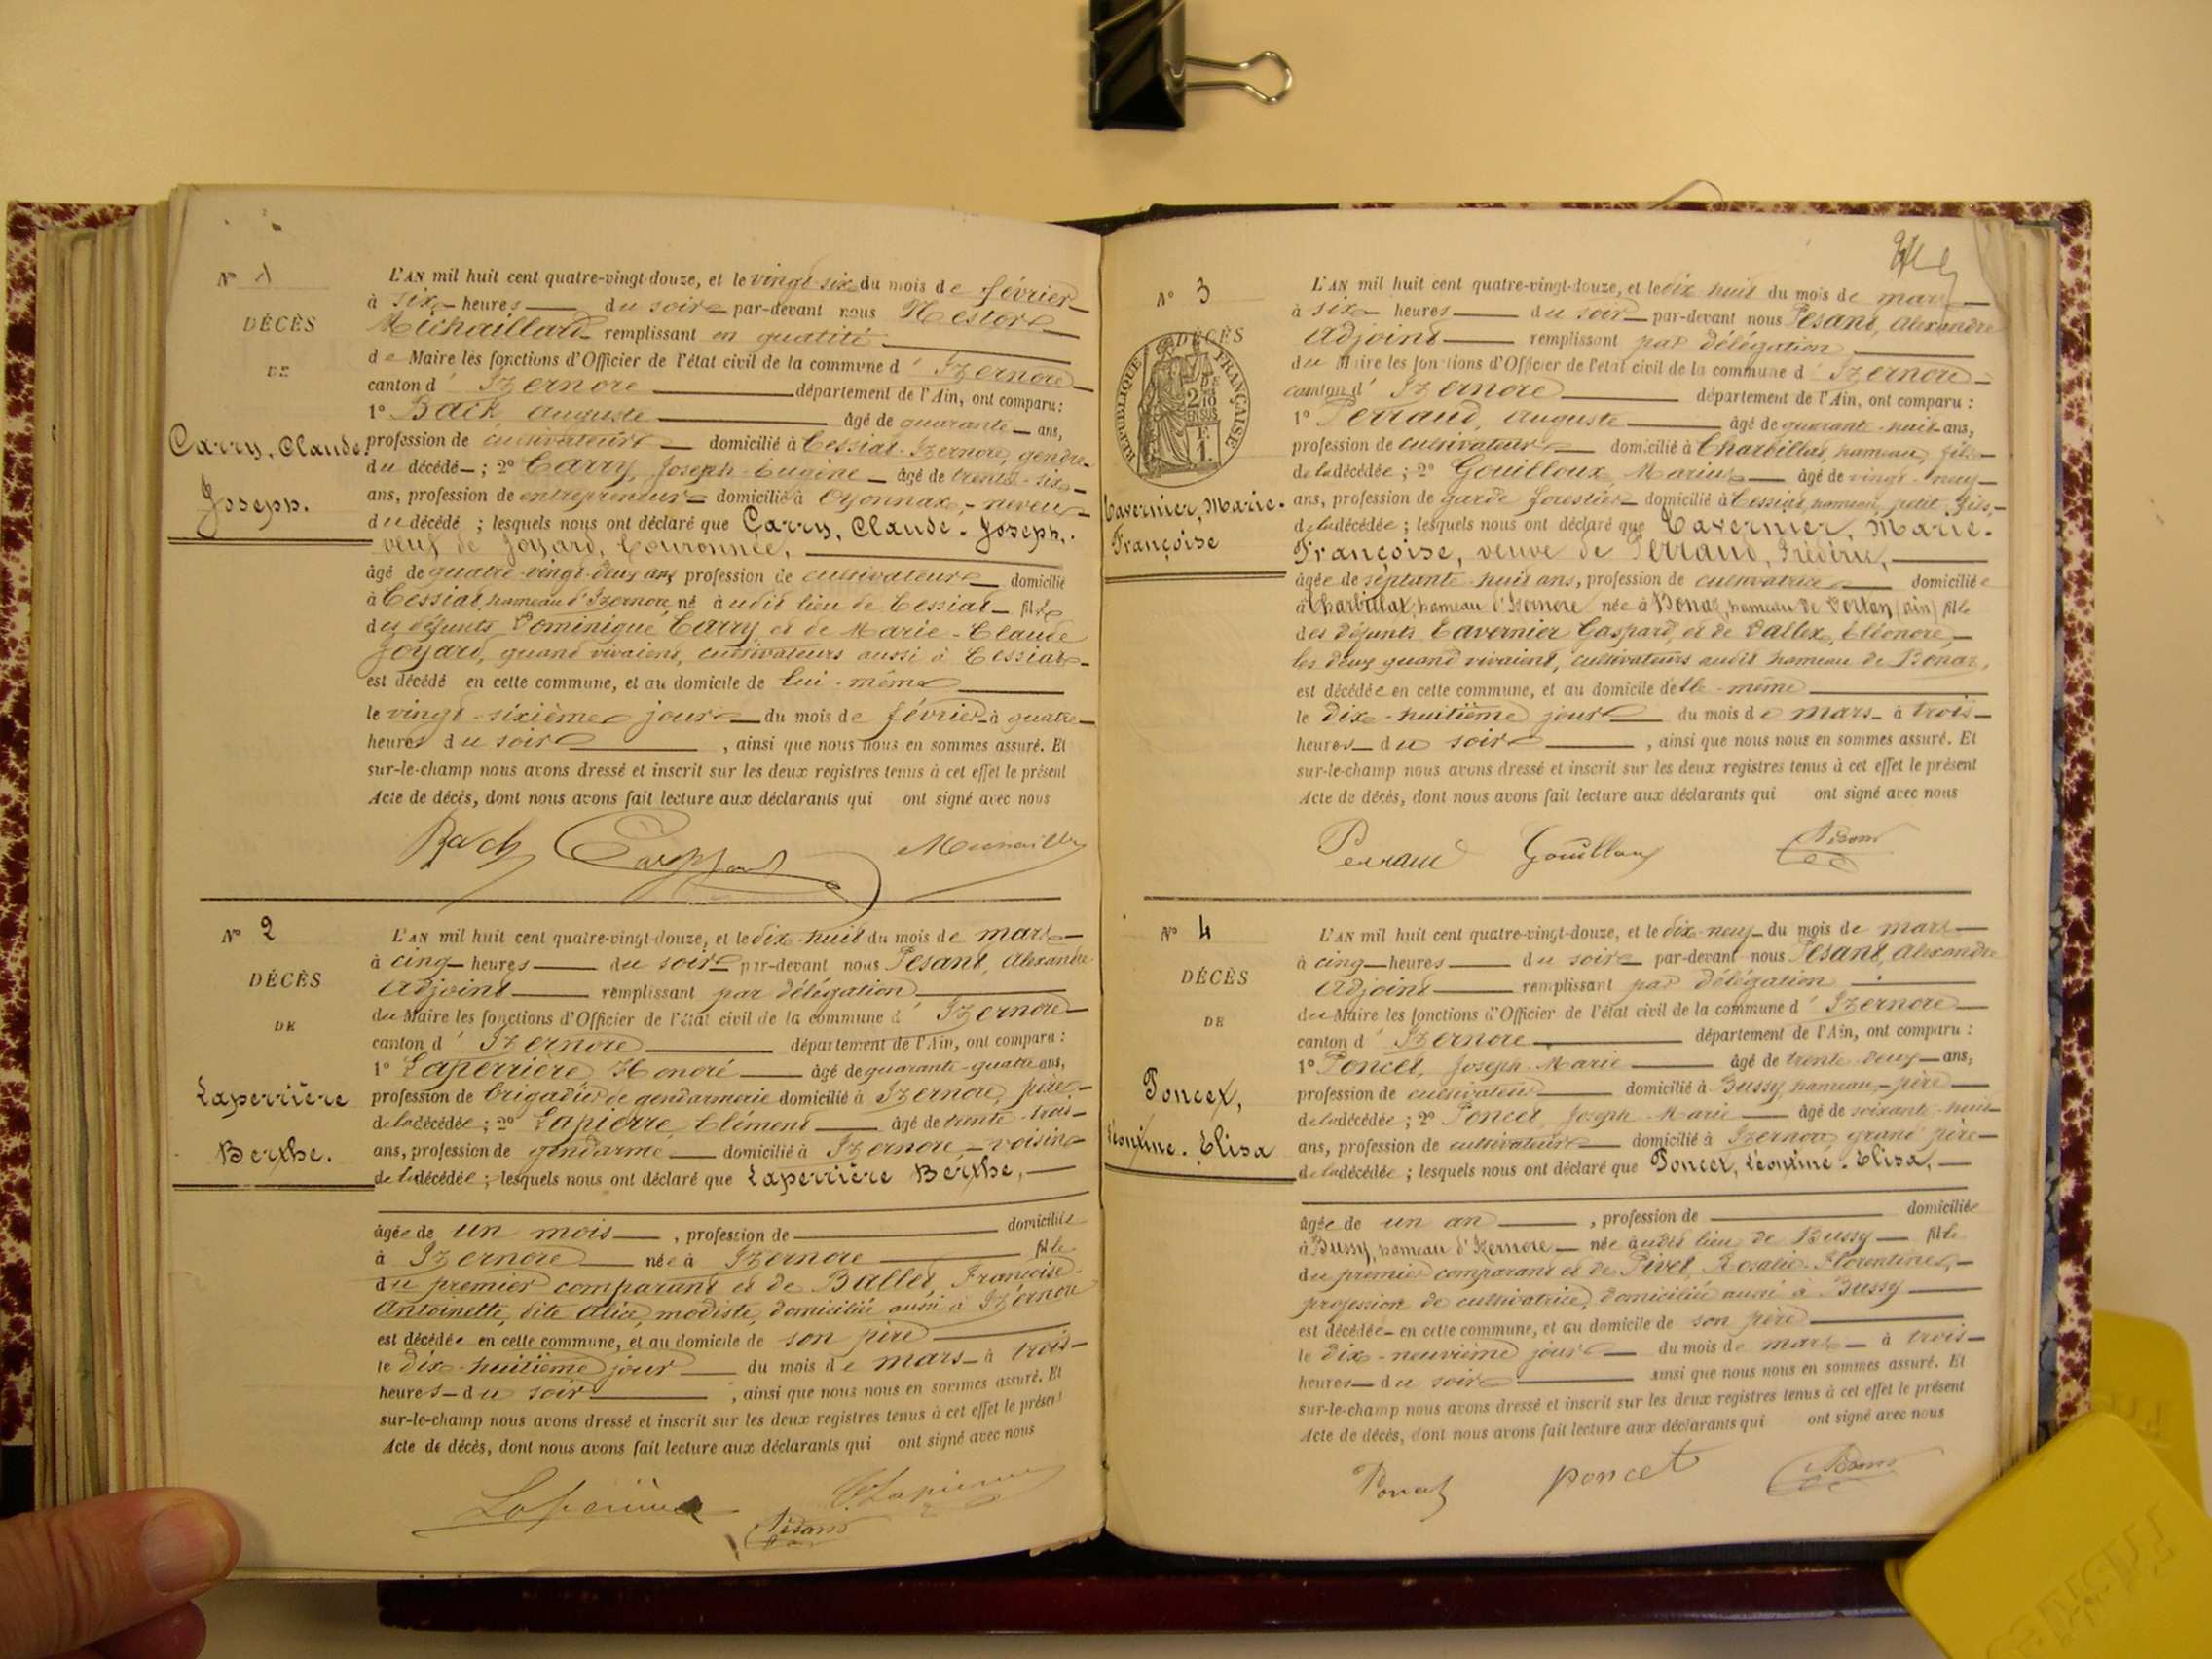 N° 1
DÉCÈS
DE
Carry, Claude.
Joseph.
L'AN mil huit cent quatre-vingt-douze, et le vingt-six du mois de février
à six heures du soir par-devant nous Nestor
Michaillard remplissant en qualité
de Maire les fonctions d'Officier de l'état civil de la commune d'Izernore
canton d'Izernore département de l'Ain, ont comparu :
1° Bach Auguste âgé de quarante ans,
profession de cultivateur domicilié à Cessiat-Izernore, gendre
du décédé ; 2° Carry, Joseph-Eugène âgé de trente-six
ans, profession de entrepreneur domicilié à Oyonnax, neveu
du décédé ; lesquels nous ont déclaré que Carry, Claude-Joseph,
veuf de Joyard, Couronnée,
âgé de quatre-vingt-deux ans profession de cultivateur domicilié
à Cessiat, hameau d'Izernore né audit lieu de Cessiat fils
des défunts Dominique Carry et de Marie-Claude
Joyard, quand vivaient, cultivateurs aussi à Cessiat
est décédé en cette commune, et au domicile de lui-même
le vingt-sixième jour du mois de février à quatre
heures du soir, ainsi que nous nous en sommes assuré. Et
sur-le-champ nous avons dressé et inscrit sur les deux registres tenus à cet effet le présent
Acte de décès, dont nous avons fait lecture aux déclarants qui ont signé avec nous
Bach
N° 2
DÉCÈS
DE
Laperrière
Berthe.
L'AN mil huit cent quatre-vingt-douze, et le dix-huit du mois de mars
à cinq heures du soir par-devant nous Pesant, Alexandre
Adjoint remplissant par délégation
du Maire les fonctions d'Officier de l'état civil de la commune d'Izernore
canton d'Izernore département de l'Ain, ont comparu :
1° Laperrière Honoré âgé de quarante-quatre ans,
profession de brigadier de gendarmerie domicilié à Izernore, père
de la décédée ; 2° Lapierre Clément âgé de trente-trois
ans, profession de gendarme domicilié à Izernore voisin
de la décédée ; lesquels nous ont déclaré que Laperrière Berthe,
âgée de un mois, profession de domiciliée
à Izernore née à Izernore fille
du premier comparant et de Ballet, Françoise-
Antoinette, dite Alice, modiste, domiciliée aussi à Izernore
est décédée en cette commune, et au domicile de son père
le dix-huitième jour du mois de mars à trois
heures du soir, ainsi que nous nous en sommes assuré. Et
sur-le-champ nous avons dressé et inscrit sur les deux registres tenus à cet effet le présent
Acte de décès, dont nous avons fait lecture aux déclarants qui ont signé avec nous
Laperrière
Lapierre
Pesant
N° 3
DÉCÈS
RÉPUBLIQUE FRANÇAISE
2/10
EN SUS
1 F.
Tavernier, Marie-
Françoise
L'AN mil huit cent quatre-vingt-douze, et le dix-huit du mois de mars
à six heures du soir par-devant nous Pesant, Alexandre
Adjoint remplissant par délégation
du Maire les fonctions d'Officier de l'état civil de la commune d'Izernore
canton d'Izernore département de l'Ain, ont comparu :
1° Perraud, Auguste âgé de quarante-huit ans,
profession de cultivateur domicilié à Charbillat, hameau, fils
de la décédée ; 2° Gouilloux, Marius âgé de vingt-neuf
ans, profession de garde forestier domicilié à Cessiat, hameau, petit-fils,
de la décédée ; lesquels nous ont déclaré que Tavernier, Marie-
Françoise, veuve de Perraud, Frédéric,
âgée de septante-huit ans, profession de cultivatrice domiciliée
à Charbillat, hameau d'Izernore née à Bonaz, hameau de Dortan (ain) fille
des défunts Tavernier Gaspard, et de Vallex, Eléonore,
les deux quand vivaient, cultivateurs audit hameau de Bonaz,
est décédée en cette commune, et au domicile d'elle-même
le dix-huitième jour du mois de mars à trois
heures du soir, ainsi que nous nous en sommes assuré. Et
sur-le-champ nous avons dressé et inscrit sur les deux registres tenus à cet effet le présent
Acte de décès, dont nous avons fait lecture aux déclarants qui ont signé avec nous
Perraud Gouilloux Pesant
N° 4
DÉCÈS
DE
Poncet,
Léontine-Elisa
L'AN mil huit cent quatre-vingt-douze, et le dix-neuf du mois de mars
à cinq heures du soir par-devant nous Pesant, Alexandre
Adjoint remplissant par délégation
du Maire les fonctions d'Officier de l'état civil de la commune d'Izernore
canton d'Izernore département de l'Ain, ont comparu :
1° Poncet, Joseph-Marie âgé de trente-deux ans,
profession de cultivateur domicilié à Bussy, hameau, père
de la décédée ; 2° Poncet Joseph-Marie âgé de soixante-huit
ans, profession de cultivateur domicilié à Izernore grand père
de la décédée ; lesquels nous ont déclaré que Poncet, Léontine-Elisa,
âgée de un an, profession de domiciliée
à Bussy, hameau d'Izernore née audit lieu de Bussy fille
du premier comparant et de Pivet, Rosalie-Florentine,
profession de cultivatrice, domiciliée aussi à Bussy
est décédée en cette commune, et au domicile de son père
le dix-neuvième jour du mois de mars à trois
heures du soir ainsi que nous nous en sommes assuré. Et
sur-le-champ nous avons dressé et inscrit sur les deux registres tenus à cet effet le présent
Acte de décès, dont nous avons fait lecture aux déclarants qui ont signé avec nous
Poncet poncet Pesant